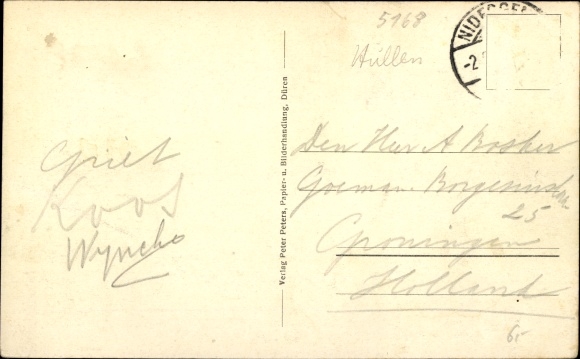 5168
Hüllen
NIDEGGEN
-2.
Verlag Peter Peters, Papier- u. Bilderhandlung, Düren
Griet
Koos
Wyncko
Den Heer A Bosker
Goeman Borgesius
25
Groningen
Holland
6,-